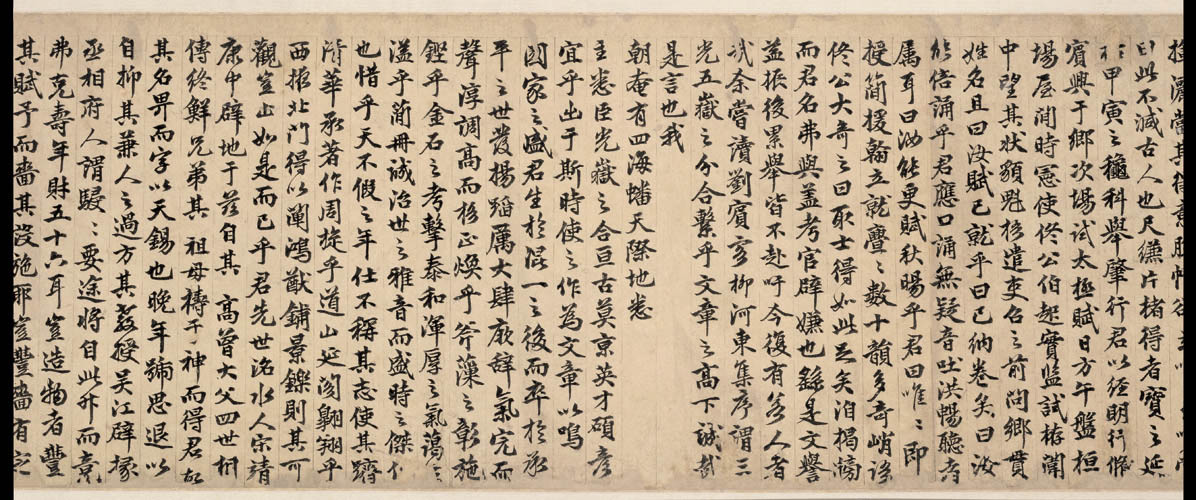 曰此不減古人也尺縑片楮得者寶之延
於甲寅之龝科舉肇行君以經明行脩
賓興于鄉次場試太極賦日方午盤桓
場屋間時憲使佟公伯起實監試楷闌
中望其狀貌魁梧遣吏召之前問鄉貫
姓名且曰汝賦已就乎曰已納卷矣曰汝
能倍誦乎君應口誦無疑音吐洪暢聽者
属耳曰汝能更賦秋暘乎君曰唯〻即
授簡援翰立就亹〻數十韻多奇峭語
佟公大奇之曰取士得如此足矣洎揭牓
而君名弗與蓋考官辟嫌也繇是文譽
益振後累舉皆不赴吁今復有若人者
哉余嘗讀劉賓客柳河東集序謂三
光五嶽之分合繫乎文章之高下誠哉
是言也我
朝奄有四海蟠天際地悉
主悉臣光嶽之合亘古莫京英才碩彥
宜乎出于斯時使之作為文章以鳴
國家之盛君生於混一之後而卒於承
平之世發揚蹈厲大肆厥辭氣完而
聲淳調高而格正煥乎斧藻之彰施
鏗乎金石之考擊泰和渾厚之氣藹〻
溢乎簡冊誠治世之雅音而盛時之傑作
也惜乎天不假之年仕不稱其志使其躋
清華承著作周旋乎道山延閣翱翔乎
西掖北門得以闡鴻猷鋪景鑠則其可
觀豈止如是而已乎君先世洺水人宋靖
康中辟地于茲自其 高曾大父四世相
傳終鮮兄弟其 祖母禱于神而得君故
其名畀而字以天錫也晚年號思退以
自抑其兼人之過方其教授吴江辟掾
丞相府人謂駸〻要途將自此升而竟
弗克壽年財五十六耳豈造物者豐
其賦予而嗇其設施耶豈豐嗇有定